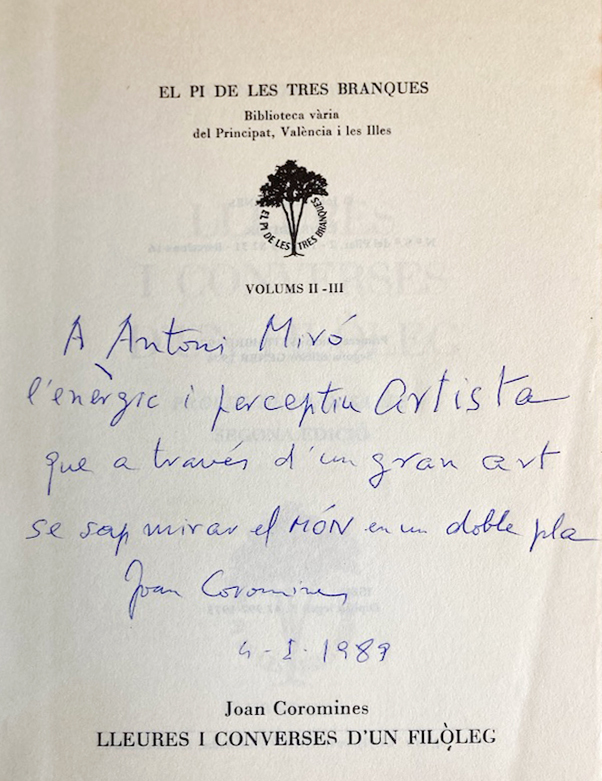 EL PI DE LES TRES BRANQUES
Biblioteca vària
del Principat, València i les Illes
EL PI DE LES TRES BRANQUES
VOLUMS II - III
A Antoni Miró
l'enèrgic i perceptiu artista
que a través d'un gran art
se sap mirar el MÓN en un doble pla
Joan Coromines
4-I-1989
Joan Coromines
LLEURES I CONVERSES D'UN FILÒLEG